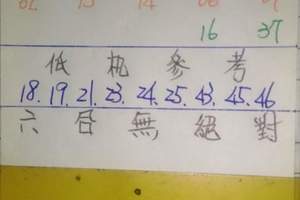 16 37
低机參考
18.19.21.23.24.25.43.45.46
六合無絕對